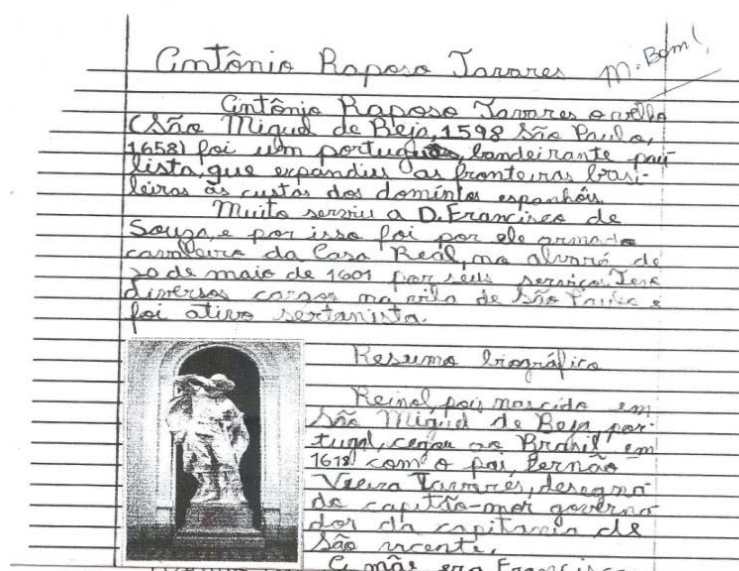 Antônio Raposo Tavares
M. Bom!
Antônio Raposo Tavares o velho
(São Miguel de Beja, 1598 São Paulo,
1658) foi um português bandeirante pau-
lista, que expandiu as fronteiras brasi-
leiras às custas dos domínios espanhóis.
Muito serviu a D. Francisco de
Souza, e por isso foi por ele armado
cavaleiro da Casa Real, no alvará de
20 de maio de 1601 por seus serviços. Teve
diversos cargos na vila de São Paulo e
foi ativo sertanista.
Resumo biográfico
Reinol, pois nascido em
São Miguel de Beja, por-
tugal, cegou ao Brasil em
1618 com o pai, Fernão
Vieira Tavares, designa
do capitão-mor governa
dor da capitania de
São vicente.
A mãe era Francisca